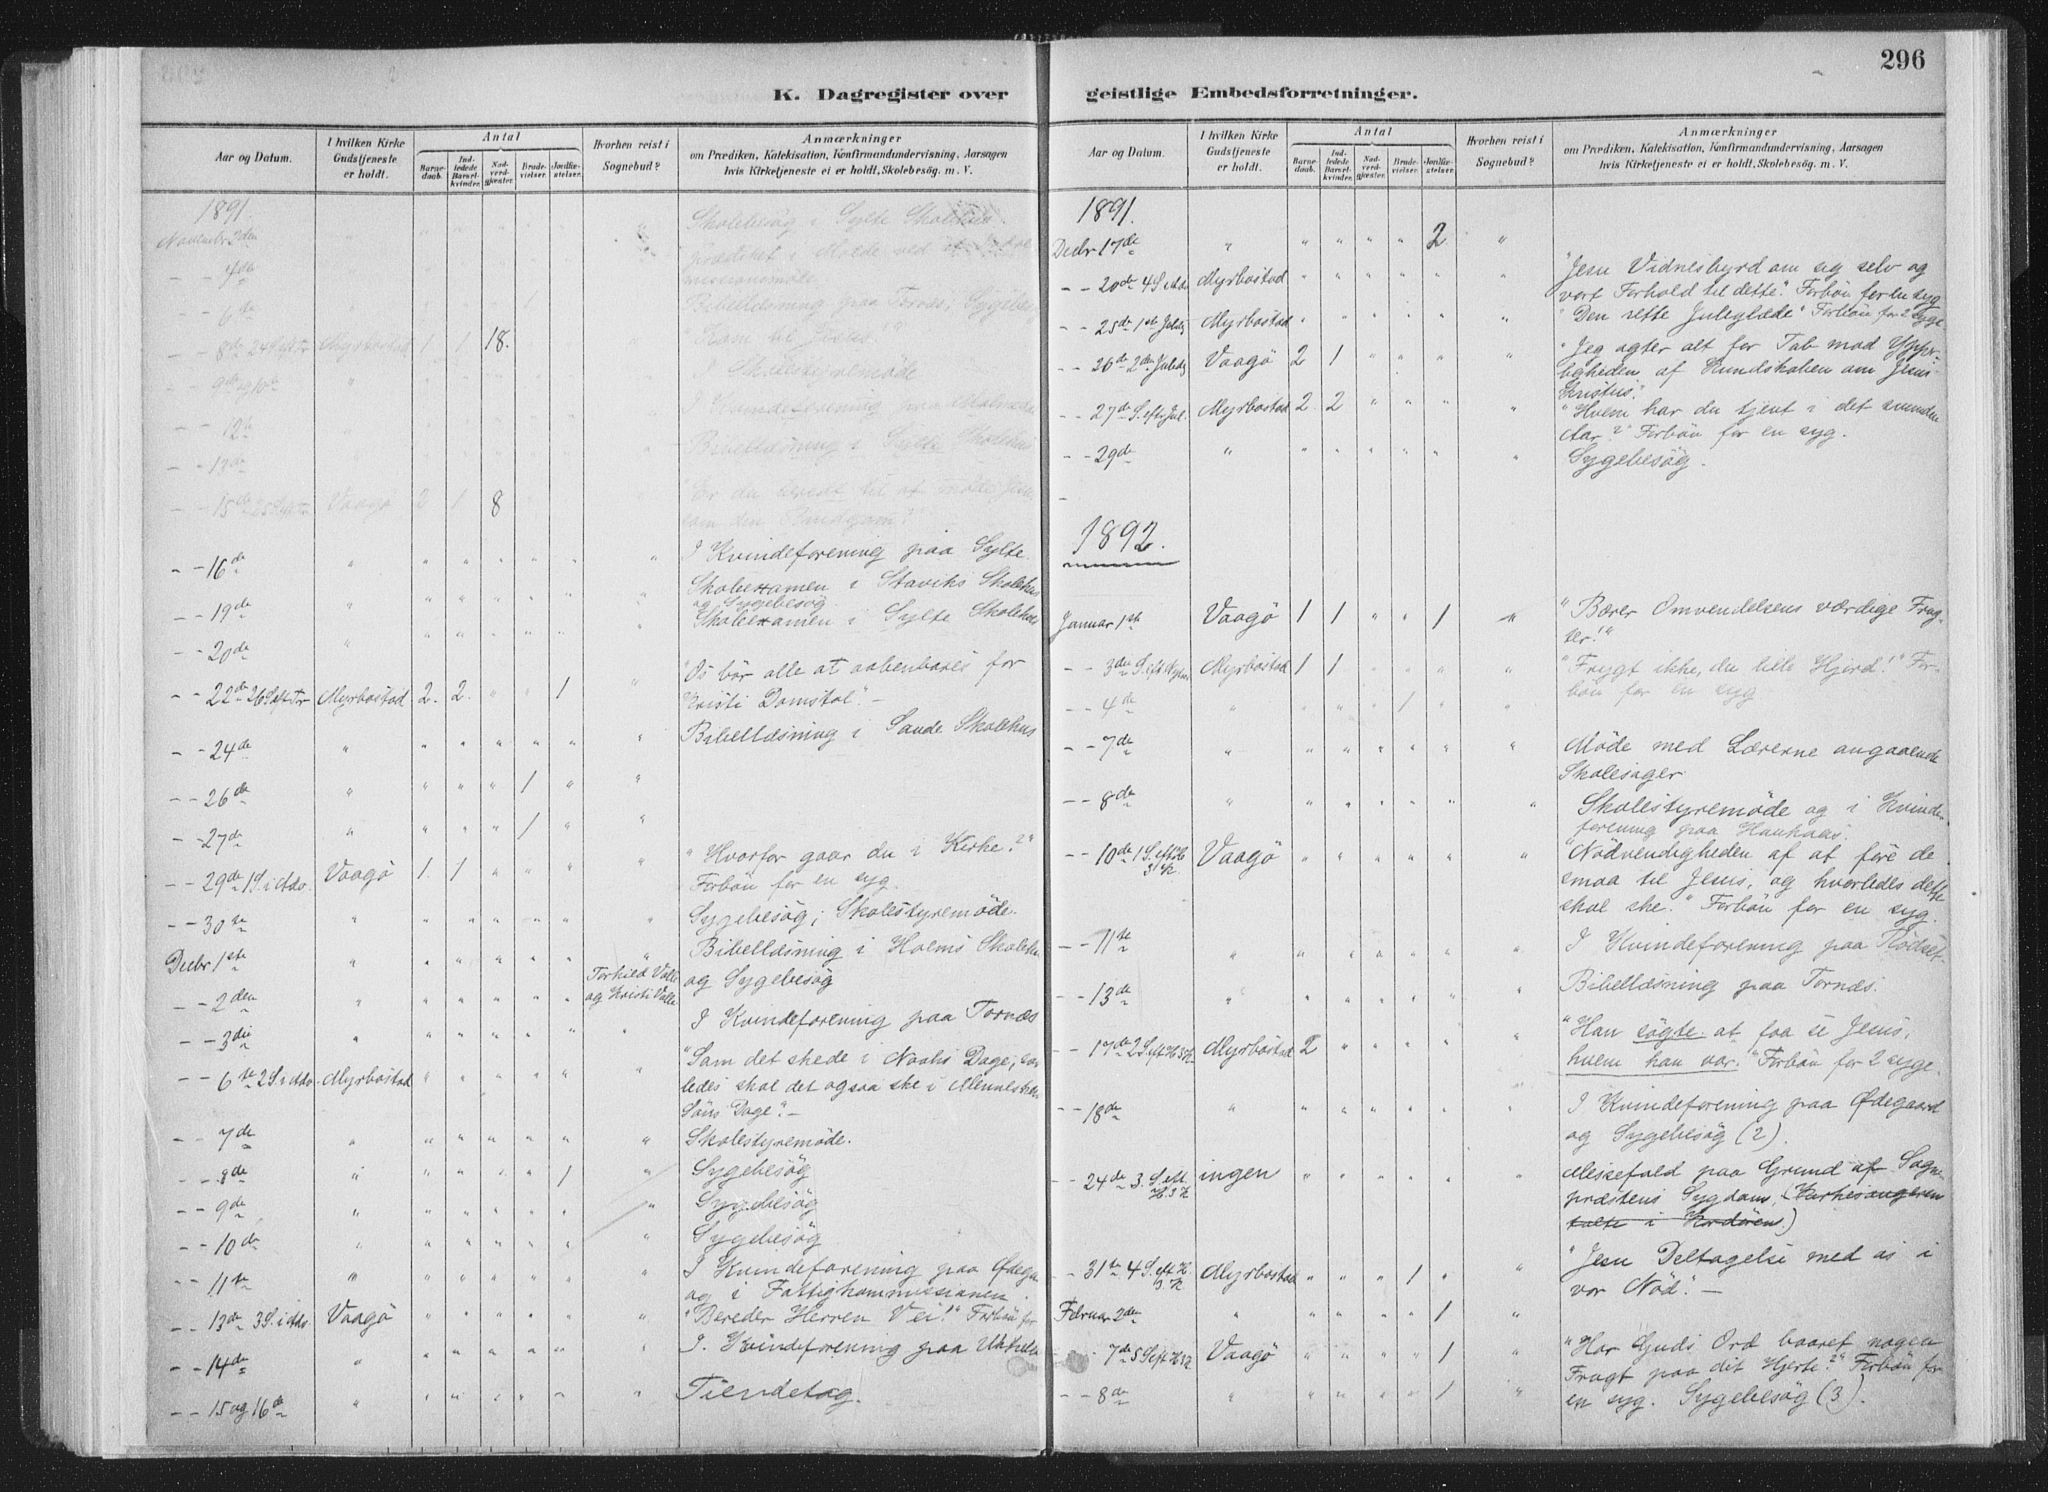 296
K. Dagregister over geistlige Embedsforretninger.
Aar og Datum.
I hvilken Kirke Gudstjeneste er holdt.
Antal
Barnedaab.
Indledede Barselkvinder.
Nadverdgjæster.
Brudevielser.
Jordfæstelser.
Hvorhen reist i Sognebud?
Anmærkninger
om Prædiken, Katekisation, Konfirmandundervisning, Aarsagen
hvis Kirketjeneste ei er holdt, Skolebesøg. m. V.
1891.
Novembr 2den " Skolebesøg i Sylte Skolehus
- - 4de " prædiket i Molde ved et
missionsmøde
- - 6te " Bibellæsning paa Tornæs, Sygebes
- - 8de 24 S. eft Tr Myrbostad 1 1 18. "Kom til Jesus!"
- - 9de og 10de " I Skolestyremøde
- - 12te I Kvindeforening paa
- - 13de " Bibellæsning i Sylte Skolehus
- - 15de 25 S eft Tr Vaagø 2 1 8 "Er du beredt til at møde Jesu
som din Brudgom?"
- - 16de " I Kvindeforening paa Sylte.
- - 19de " Skoleexamen i Staviks Skolehus
og Sygebesøg
- - 20de " Skoleexamen i Sylte Skolehus
- - 22de 26 S. eft Tr Myrbostad 2. 2. " " 1 " "Os bør alle at aabenbares for
Kristi Domstol". -
- - 24de " " " " " " " Bibellæsning i Sande Skolehus
- - 26de " " " " 1 " "
- - 27de " " " " 1 " "
- - 29de 1 S. i Adv. Vaagø 1. 1 " " " " "Hvorfor gaar du i Kirke?"
Forbøn for en syg.
- - 30te " " " " " " " Sygebesøg; Skolestyremøde.
Decbr 1ste " " " " " " " Bibellæsning i Holms Skolehu
og Sygebesøg
- - 2den " " " " " " Torhild Valle
og Kristi Valle
- - 3die " " " " " " " I Kvindeforening paa Tornæs
- - 6te 2 S. i Adv. Myrbostad " " " " " " "Som det skede i Noahs Dage, saa-
ledes skal det ogsaa ske i Menneskens
Søns Dage". -
- - 7de " " " " " " " Skolestyremøde.
- - 8de " " " " " 1 " Sygebesøg
- - 9de " " " " " " " Sygebesøg
- - 10de " " " " " " " Sygebesøg
- - 11te " " " " " " " I Kvindeforening paa Ødega
og i Fattigkommissionen.
- - 13de 3 S. i Adv. Vaagø " " " " " " "Bereder Herren Vei!" Forbøn for
- - 14de " " " " " " " I. Kvindeforening paa
- - 15 og 16de " " " " " " " Tiendetag.
Aar og Datum.
I hvilken Kirke Gudstjeneste er holdt.
Antal
Barnedaab.
Indledede Barselkvinder.
Nadverdgjæster.
Brudevielser.
Jordfæstelser.
Hvorhen reist i Sognebud?
Anmærkninger
om Prædiken, Katekisation, Konfirmandundervisning, Aarsagen
hvis Kirketjeneste ei er holdt, Skolebesøg. m. V.
1891.
Decbr 17de " " " " " 2 "
- - 20de 4 S i Adv Myrbostad " " " " " " "Jesu Vidnesbyrd om sig selv og
vort Forhold til dette". Forbøn for en syg
- - 25de 1ste Juledg Myrbostad " " " " " " "Den rette Juleglæde" Forbøn for 2 syge
- - 26de 2den Juledg Vaagø 2 1 " " " " "Jeg agter alt for Tab mod Yppr-
ligheden af Kundskaben om Jesus
Kristus".
- - 27de S. eftr Jul. Myrbostad 2. 2 " " " " "Hvem har du tjent i det svundne
Aar?" Forbøn for en syg.
- - 29de " " " " " " " Sygebesøg.
1892.
Januar 1ste Vaagø 1 1 " " 1 " "Bærer Omvendelsens værdige Frug-
ter!"
- - 3die S. eft Nytaar Myrbostad 1 1 " " " " "Frygt ikke, du lille Hjord!" For-
bøn for en syg
- - 4de " " " " 1 " "
- - 7de " " " " " " " Møde med Lærerne angaaende
Skolesager
- - 8de " " " " " " " Skolestyremøde og i Kvinde-
forening paa Haukaas.
- - 10de 1 S. eft H. 3 K. Vaagø " " " " " " "Nødvendigheden af at føre de
smaa til Jesus, og hvorledes dette
skal ske." Forbøn for en syg.
- - 11te " " " " " " " I Kvindeforening paa Rødset.
- - 13de " " " " " " " Bibellæsning paa Tornæs.
- - 17de 2 S. eft H 3 K. Myrbostad 2 " " " " " "Han søgte at faa se Jesus,
hvem han var." Forbøn for 2 syge.
- - 18de " " " " " " " I Kvindeforening paa Ødegaard
og Sygebesøg (2).
- - 24de 3. S. eft H. 3 K ingen " " " " " " Messefald paa Grund af Sogne-
præstens Sygdom. (Kirkesangeren
talte i Kordøren.)
- - 31te 4 S. eft H. 3. K Myrbostad " " " 1 " " "Jesu Deltagelse med os i
vor Nød". -
Februar 2den " " " " " 1 "
- - 7de 5 S eft H 3 K Vaagø " " " " 1 " "Har Guds Ord baaret nogen
Frugt paa dit Hjerte?" Forbøn for
- - 8de " " " " " 1 " en syg. Sygebesøg (3).